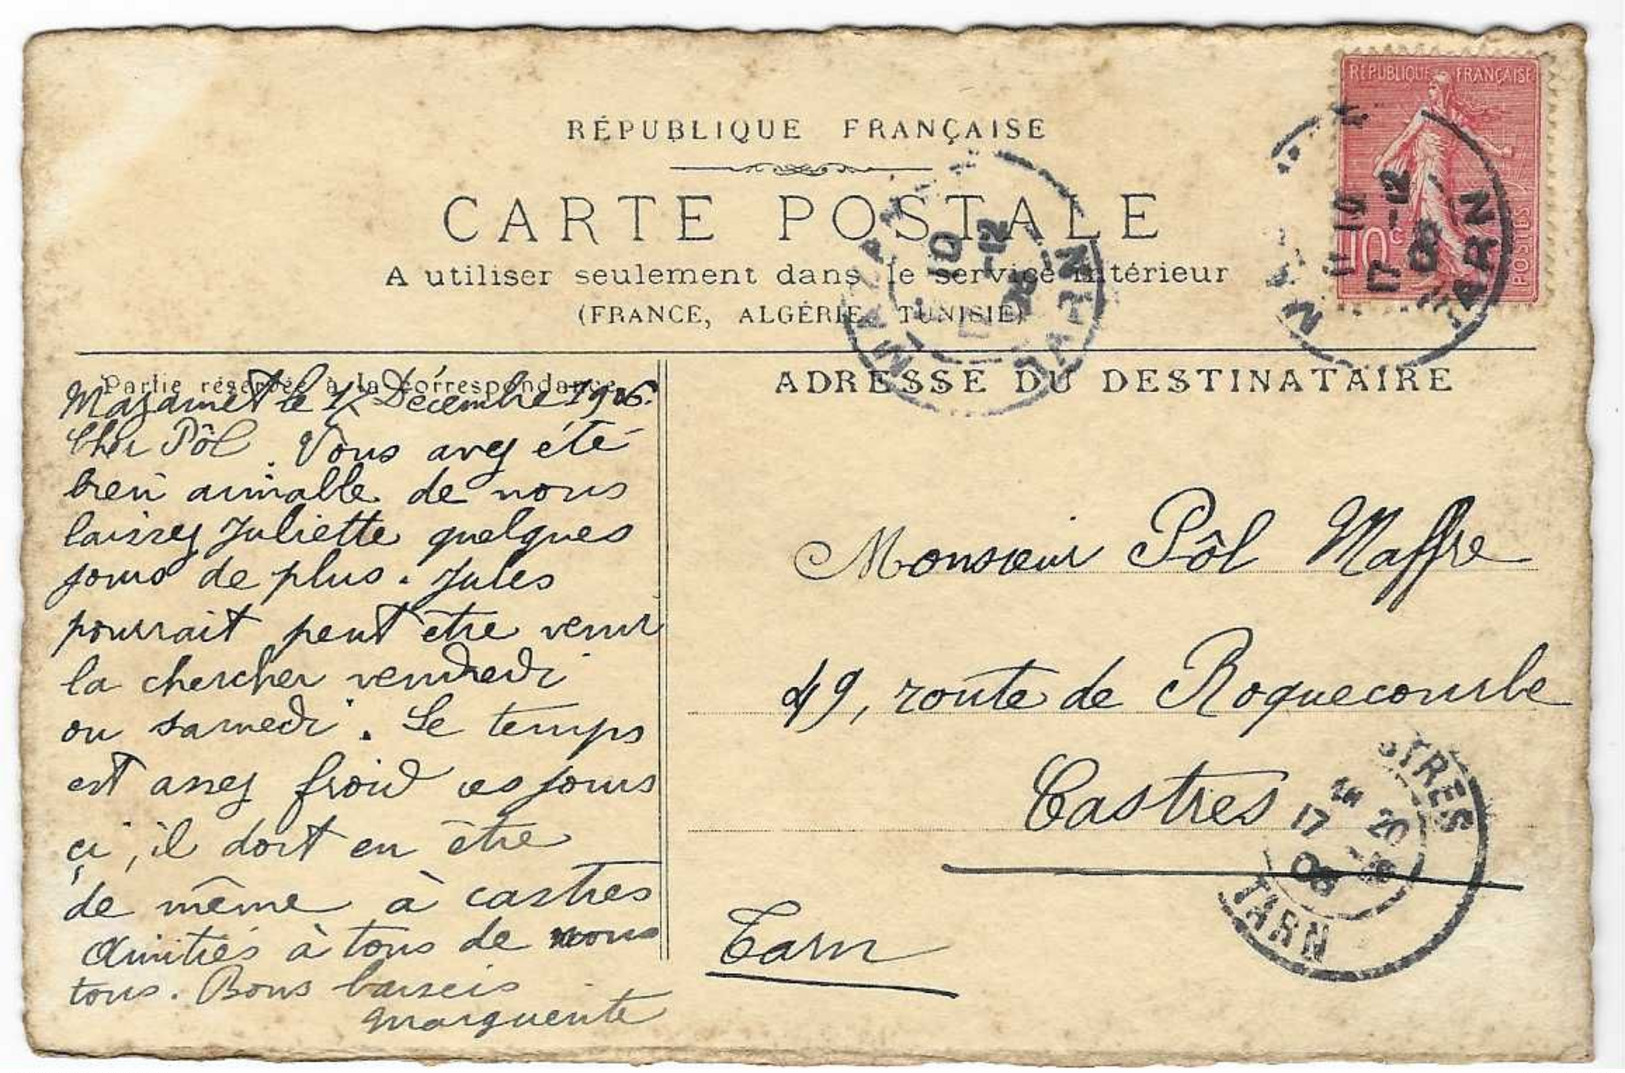 RÉPUBLIQUE FRANÇAISE
CARTE POSTALE
A utiliser seulement dans le service intérieur
(FRANCE, ALGÉRIE, TUNISIE)
RÉPUBLIQUE FRANÇAISE
10c
POSTES
17 -12
TARN
MAZAMET
10
-12
TARN
Partie réservée à la correspondance
ADRESSE DU DESTINATAIRE
Mazamet le 17 Décembre 1906.
Cher Pôl. Vous avez été
bien aimable de nous
laissez Juliette quelques
jours de plus. Jules
pourrait peut être venir
la chercher vendredi
ou samedi. Le temps
est assez froid ces jours
ci, il doit en être
de même à castres
Amitiés à tous de nous
tous. Bons baisers
Marguerite
Monsieur Pôl Maffre
49, route de Roquecourbe
Castres
Tarn
STRES
17
20
TARN